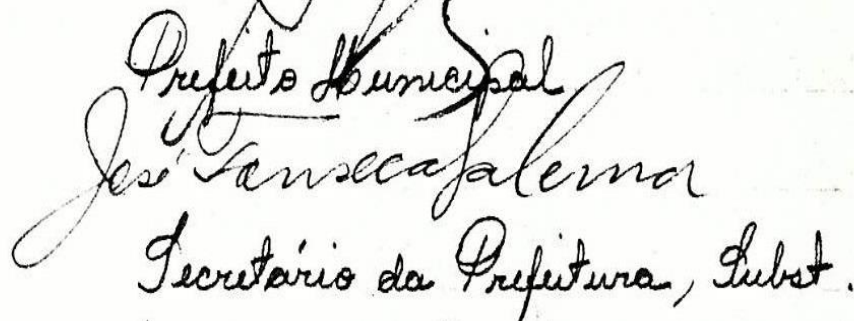 Prefeito Municipal
José Fonseca Palerma
Secretário da Prefeitura, Subst.